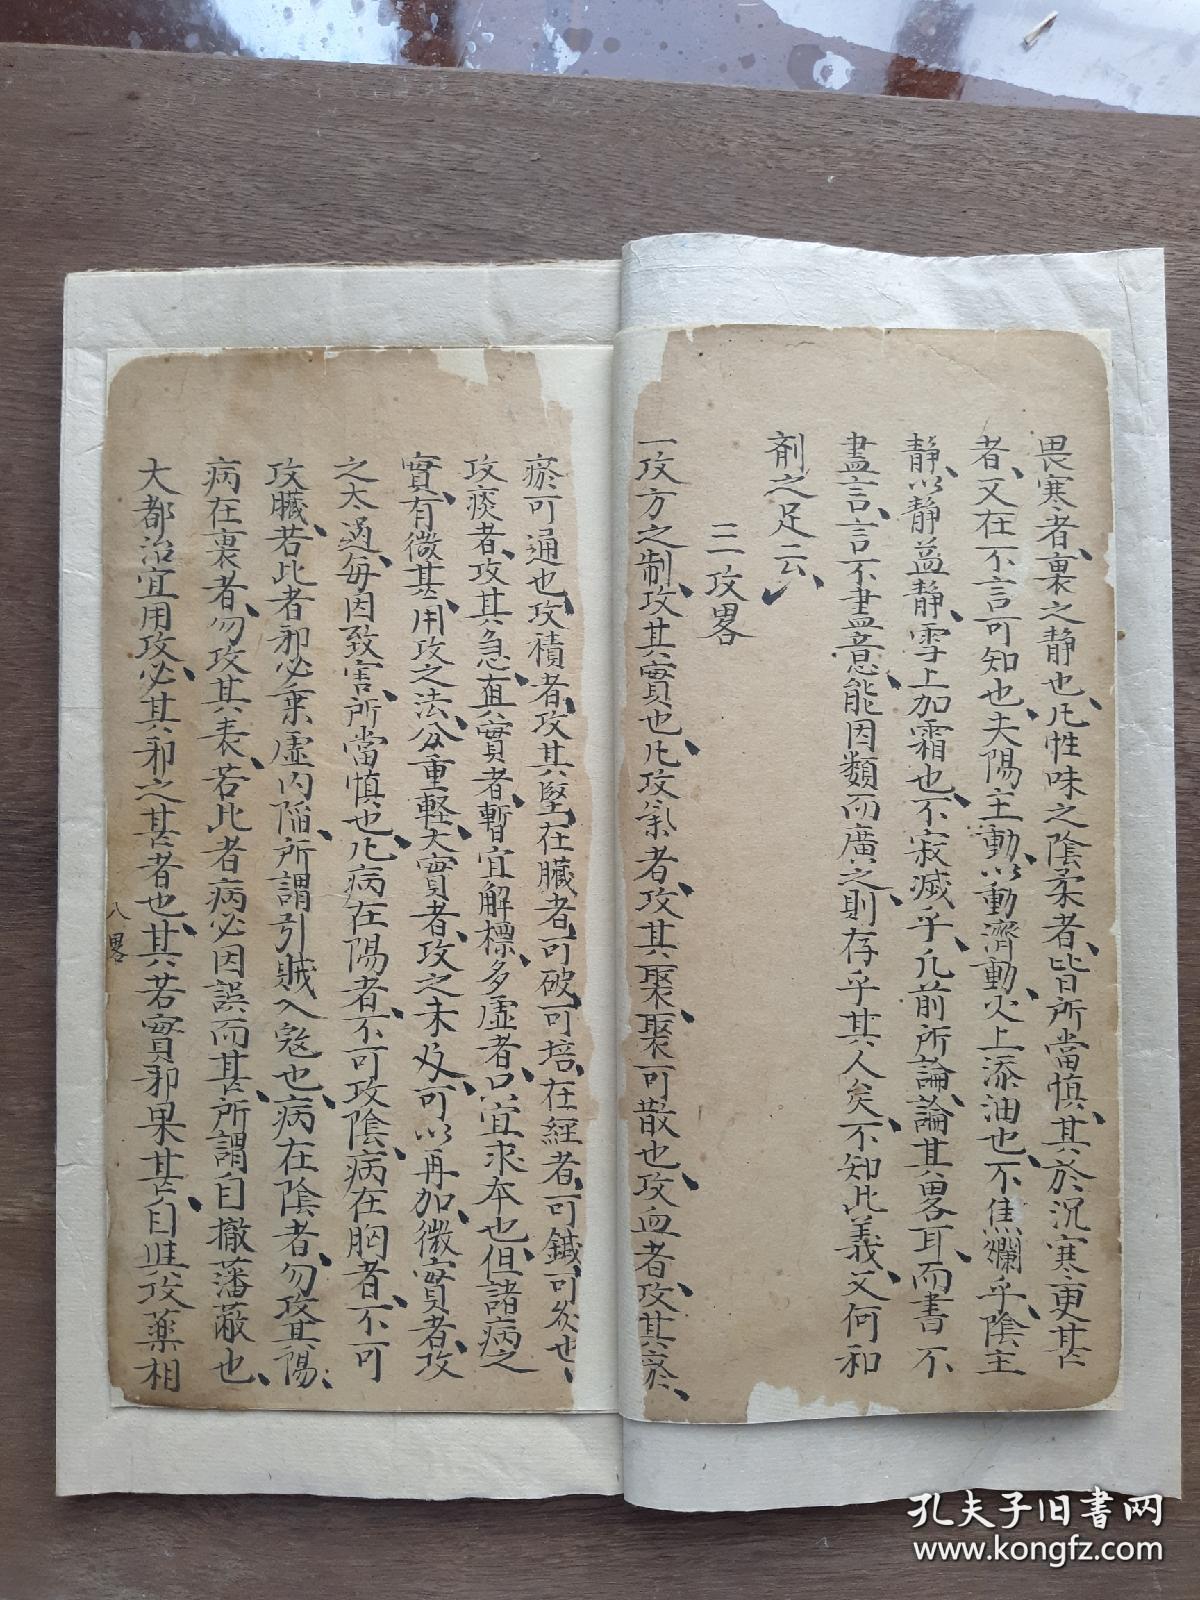 畏寒者、裏之静也、凡性味之陰柔者、皆所當慎、其於沉寒更甚
者、又在不言可知也、夫陽主動、以動濟動、火上添油也、不焦爛乎、陰主
静、以静益静、雪上加霜也、不寂滅乎、凡前所論、論其畧耳、而書不
盡言、言不盡意、能因類而廣之、則存乎其人矣、不知此義、又何和
剤之足云、
三攻畧
一攻方之制、攻其實也、凡攻氣者、攻其聚、聚可散也、攻血者、攻其瘀、
瘀可通也、攻積者、攻其堅、在臟者、可破可培、在經者、可鍼可灸也、
攻痰者、攻其急、真實者、暫宜解標、多虛者、只宜求本也、但諸病之
實、有微甚、用攻之法、分重輕、大實者、攻之未及、可以再加、微實者、攻
之太過、每因致害、所當慎也、凡病在陽者、不可攻陰、病在胸者、不可
攻臟、若此者、邪必乗虛内陷、所謂引賊入寇也、病在陰者、勿攻其陽、
病在裏者、勿攻其表、若此者、病必因誤而甚、所謂自撤藩蔽也、
大都治宜用攻、必其邪之甚者也、其若實邪果甚、自與攻藥相
八畧
孔夫子旧書网
www.kongfz.com